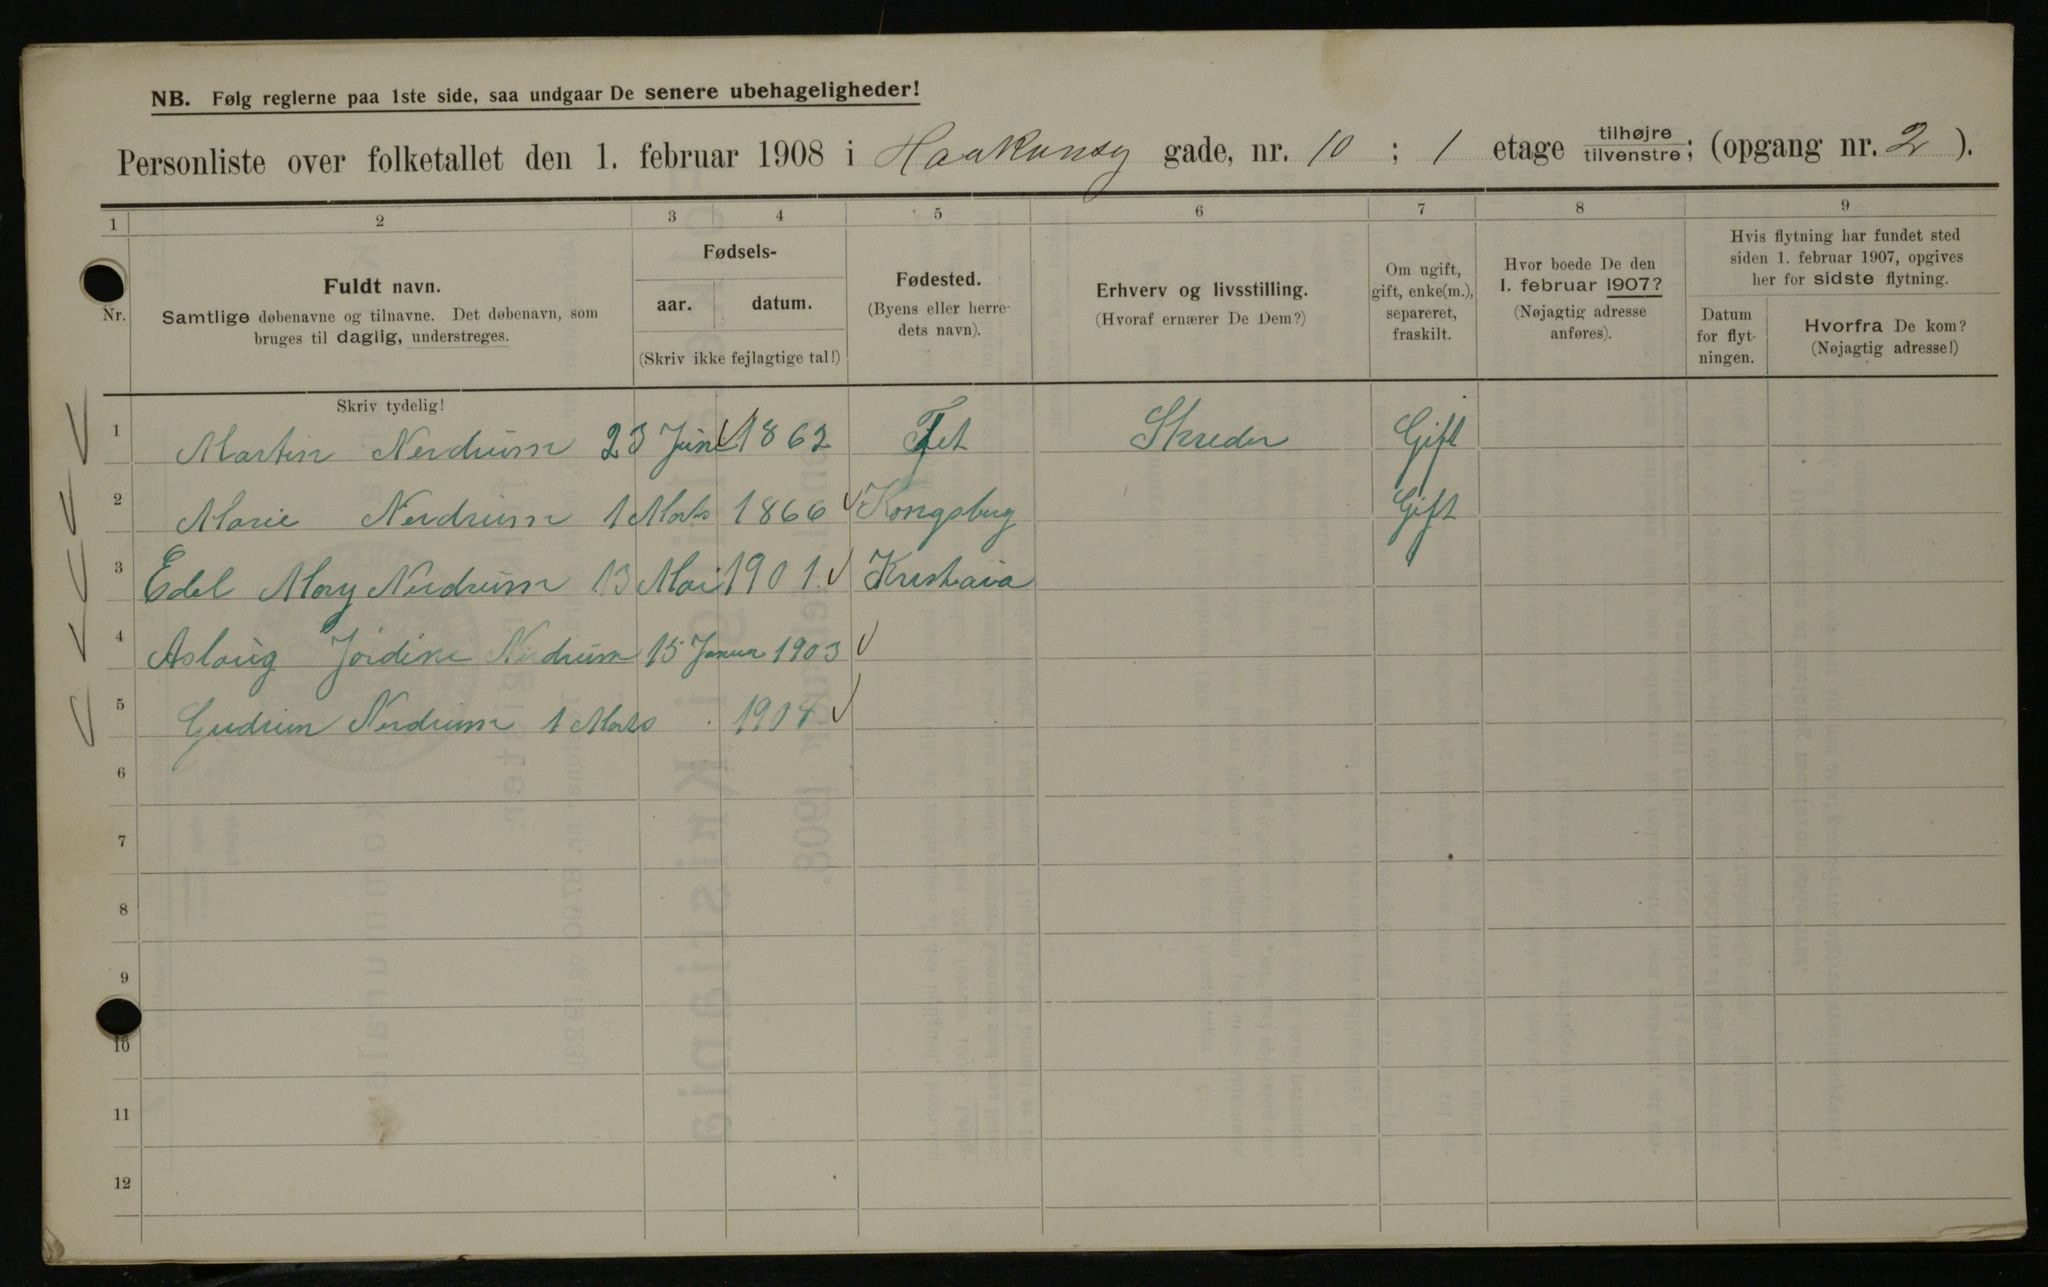 NB. Følg reglerne paa 1ste side, saa undgaar De senere ubehageligheder!
Personliste over folketallet den 1. februar 1908 i Haakonsg gade, nr. 10 ; 1 etage tilhøjre tilvenstre; (opgang nr. 2 ).
1 2 3 4 5 6 7 8 9
Nr.
Fuldt navn.
Samtlige døbenavne og tilnavne. Det døbenavn, som
bruges til daglig, understreges.
Fødsels-
aar. datum.
(Skriv ikke fejlagtige tal!)
Fødested.
(Byens eller herre-
dets navn).
Erhverv og livsstilling.
(Hvoraf ernærer De Dem?)
Om ugift,
gift, enke(m.),
separeret,
fraskilt.
Hvor boede De den
1. februar 1907?
(Nøjagtig adresse
anføres).
Hvis flytning har fundet sted
siden 1. februar 1907, opgives
her for sidste flytning.
Datum
for flyt-
ningen.
Hvorfra De kom?
(Nøjagtig adresse!)
Skriv tydelig!
1 Martin Nerdrum 23 Juni 1862 Fet Skreder Gift
2 Marie Nerdrum 1 Marts 1866 Kongsberg Gift
3 Edel Mary Nerdrum 13 Mai 1901 Kristiania
4 Aslaug Jordine Nerdrum 15 Januar 1903
5 Gudrun Nerdrum 1 Marts 1904
6
7
8
9
10
11
12